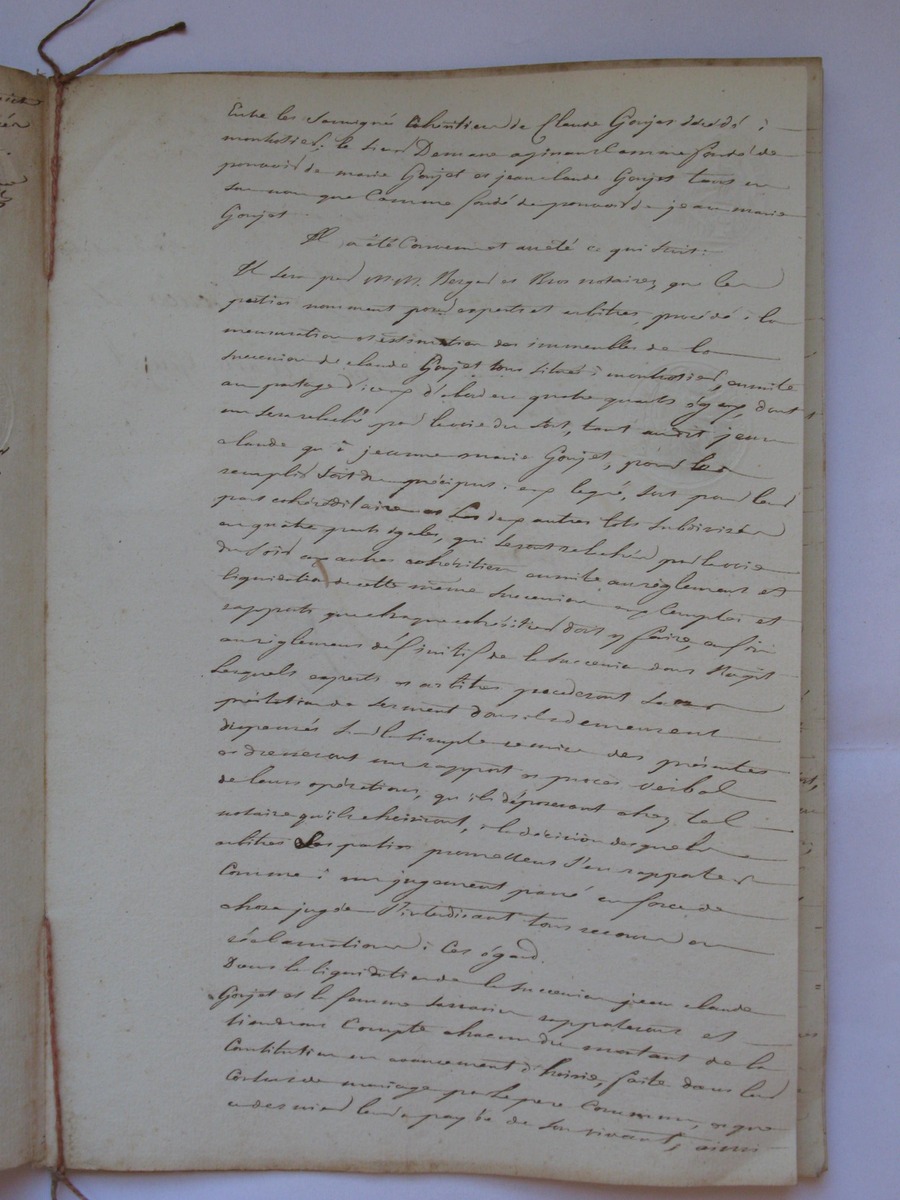 Entre les soussignés cohéritiers de Claude Goujet décédé à
montrottier; le sieur Demare agissant comme fondé de
pouvoir de marie Goujet et jean claude Goujet tant en
son nom que comme fondé de pouvoir de jeanne marie
Goujet
Il a été Convenu et arrêté ce qui suit:
Il sera par MM. Berger et Bros notaires, que les
parties nomment pour experts et arbitres, procédé à la
mensuration et estimation des immeubles de la
succession de claude Goujet tous situés à montrottier, ensuite
au partage d'iceux d'abord en quatre quarts égaux, dont
un sera relaché par la voie du sort, tant audit jean
claude qu'à jeanne marie Goujet, pour les
remplir soit du préciput à eux légué, soit pour leur
part cohéréditaire et les deux autres lots subdivisés
en quatre parts égales, qui seront relachées par la voie
du sort aux autres cohéritiers ensuite au règlement et
liquidation de cette même succession aux comptes et
rapports que chaque cohéritier doit y faire, enfin
au règlement définitif de la succession dont s'agit
Lesquels experts et arbitres procéderont sans
préstation de serment dont ils demeurent
dispensés sur la simple remise des présentes
et dresseront un rapport et procès verbal
de leurs opérations, qu'ils déposeront chez tel
notaire qu'ils choisiront, à la décision desquels
arbitres Les parties promettent s'en rapporter
Comme à un jugement passé en force de
chose jugée s'interdisant tous recours ou
réclamations à cet égard.
Dans la liquidation de la succession jean claude
Goujet et la femme rapporteront et
tiendront Compte chacun du montant de la
Constitution en avancement d'hoirie, faite dans leur
Contrat de mariage par le père Commun, et que
ce dernier leur a payée de son vivant, ainsi